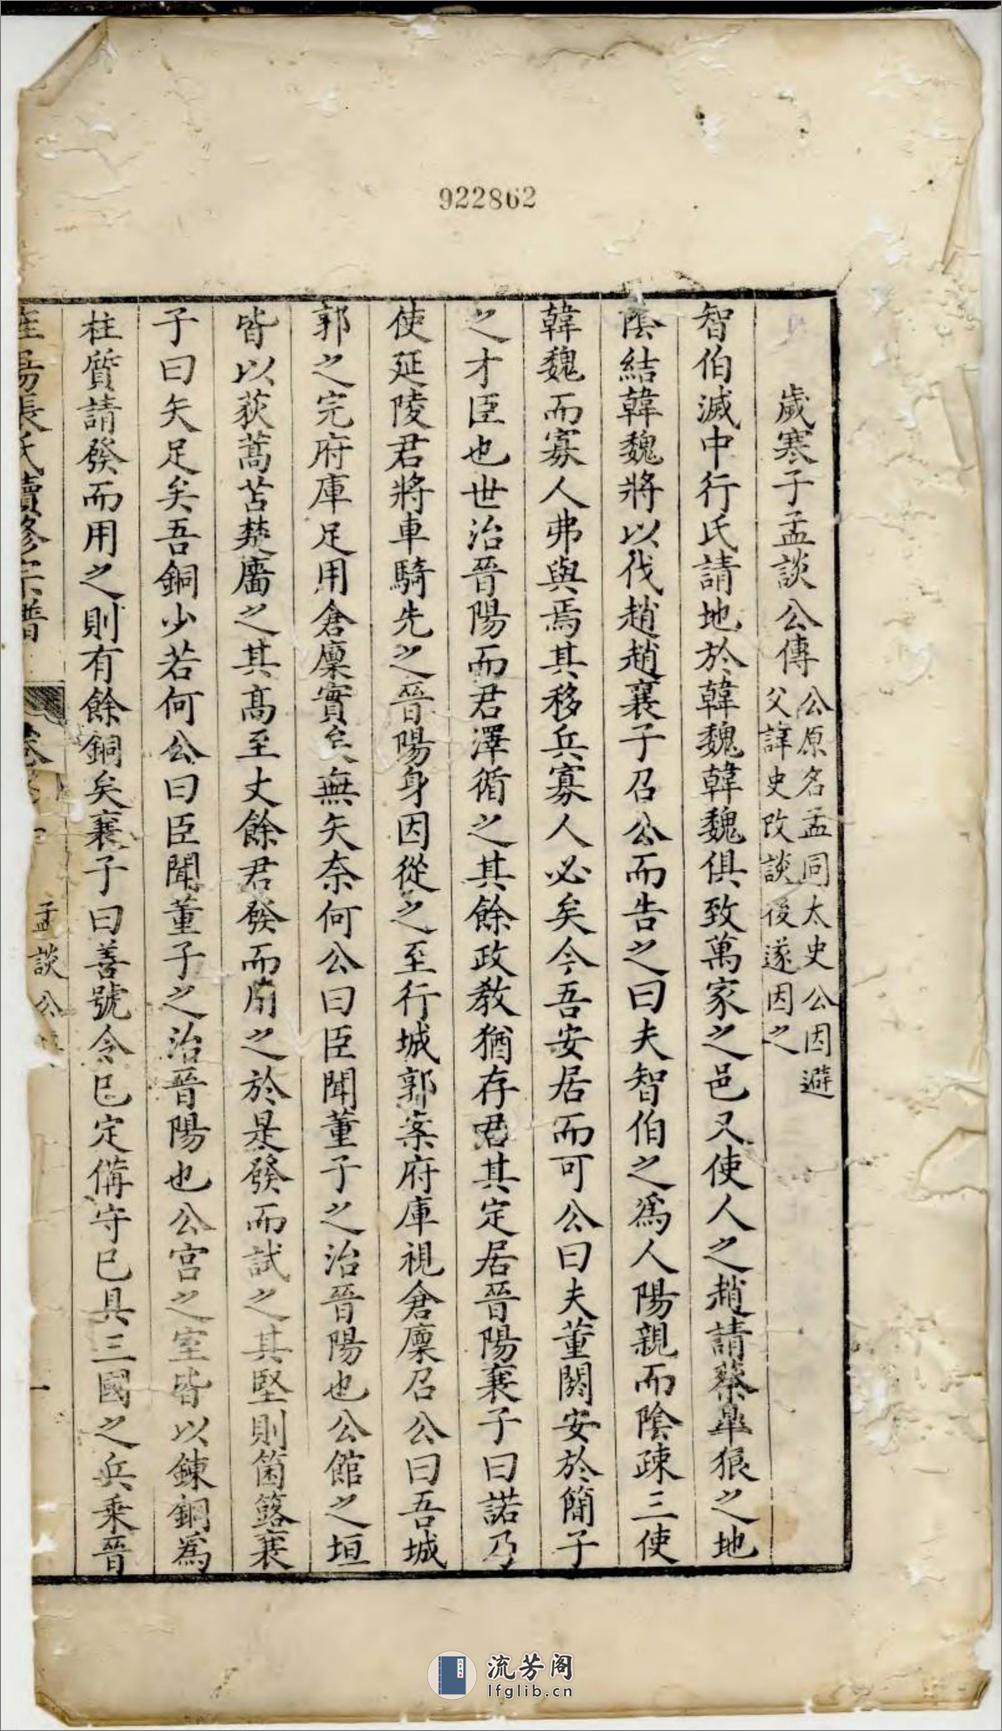 922862
歲寒子孟談公傳
公原名孟同太史公因避
父諱史改談後遂因之
智伯滅中行氏請地於韓魏韓魏俱致萬家之邑又使人之趙請蔡臯狼之地
陰結韓魏將以伐趙趙襄子召公而告之曰夫智伯之爲人陽親而陰疎三使
韓魏而寡人弗與焉其移兵寡人必矣今吾安居而可公曰夫董閼安於簡子
之才臣也世治晉陽而君澤循之其餘政教猶存君其定居晉陽襄子曰諾乃
使延陵君將車騎先之晉陽身因從之至行城郭案府庫視倉廩召公曰吾城
郭之完府庫足用倉廩實矣無矢奈何公曰臣聞董子之治晉陽也公館之垣
皆以荻蒿苫楚廧之其高至丈餘君發而用之於是發而試之其堅則箘簬襄
子曰矢足矣吾銅少若何公曰臣聞董子之治晉陽也公宮之室皆以鍊銅爲
柱質請發而用之則有餘銅矣襄子曰善號令已定備守已具三國之兵乘晉
張氏續修宗譜
孟談公
一
流芳阁
lfglib.cn